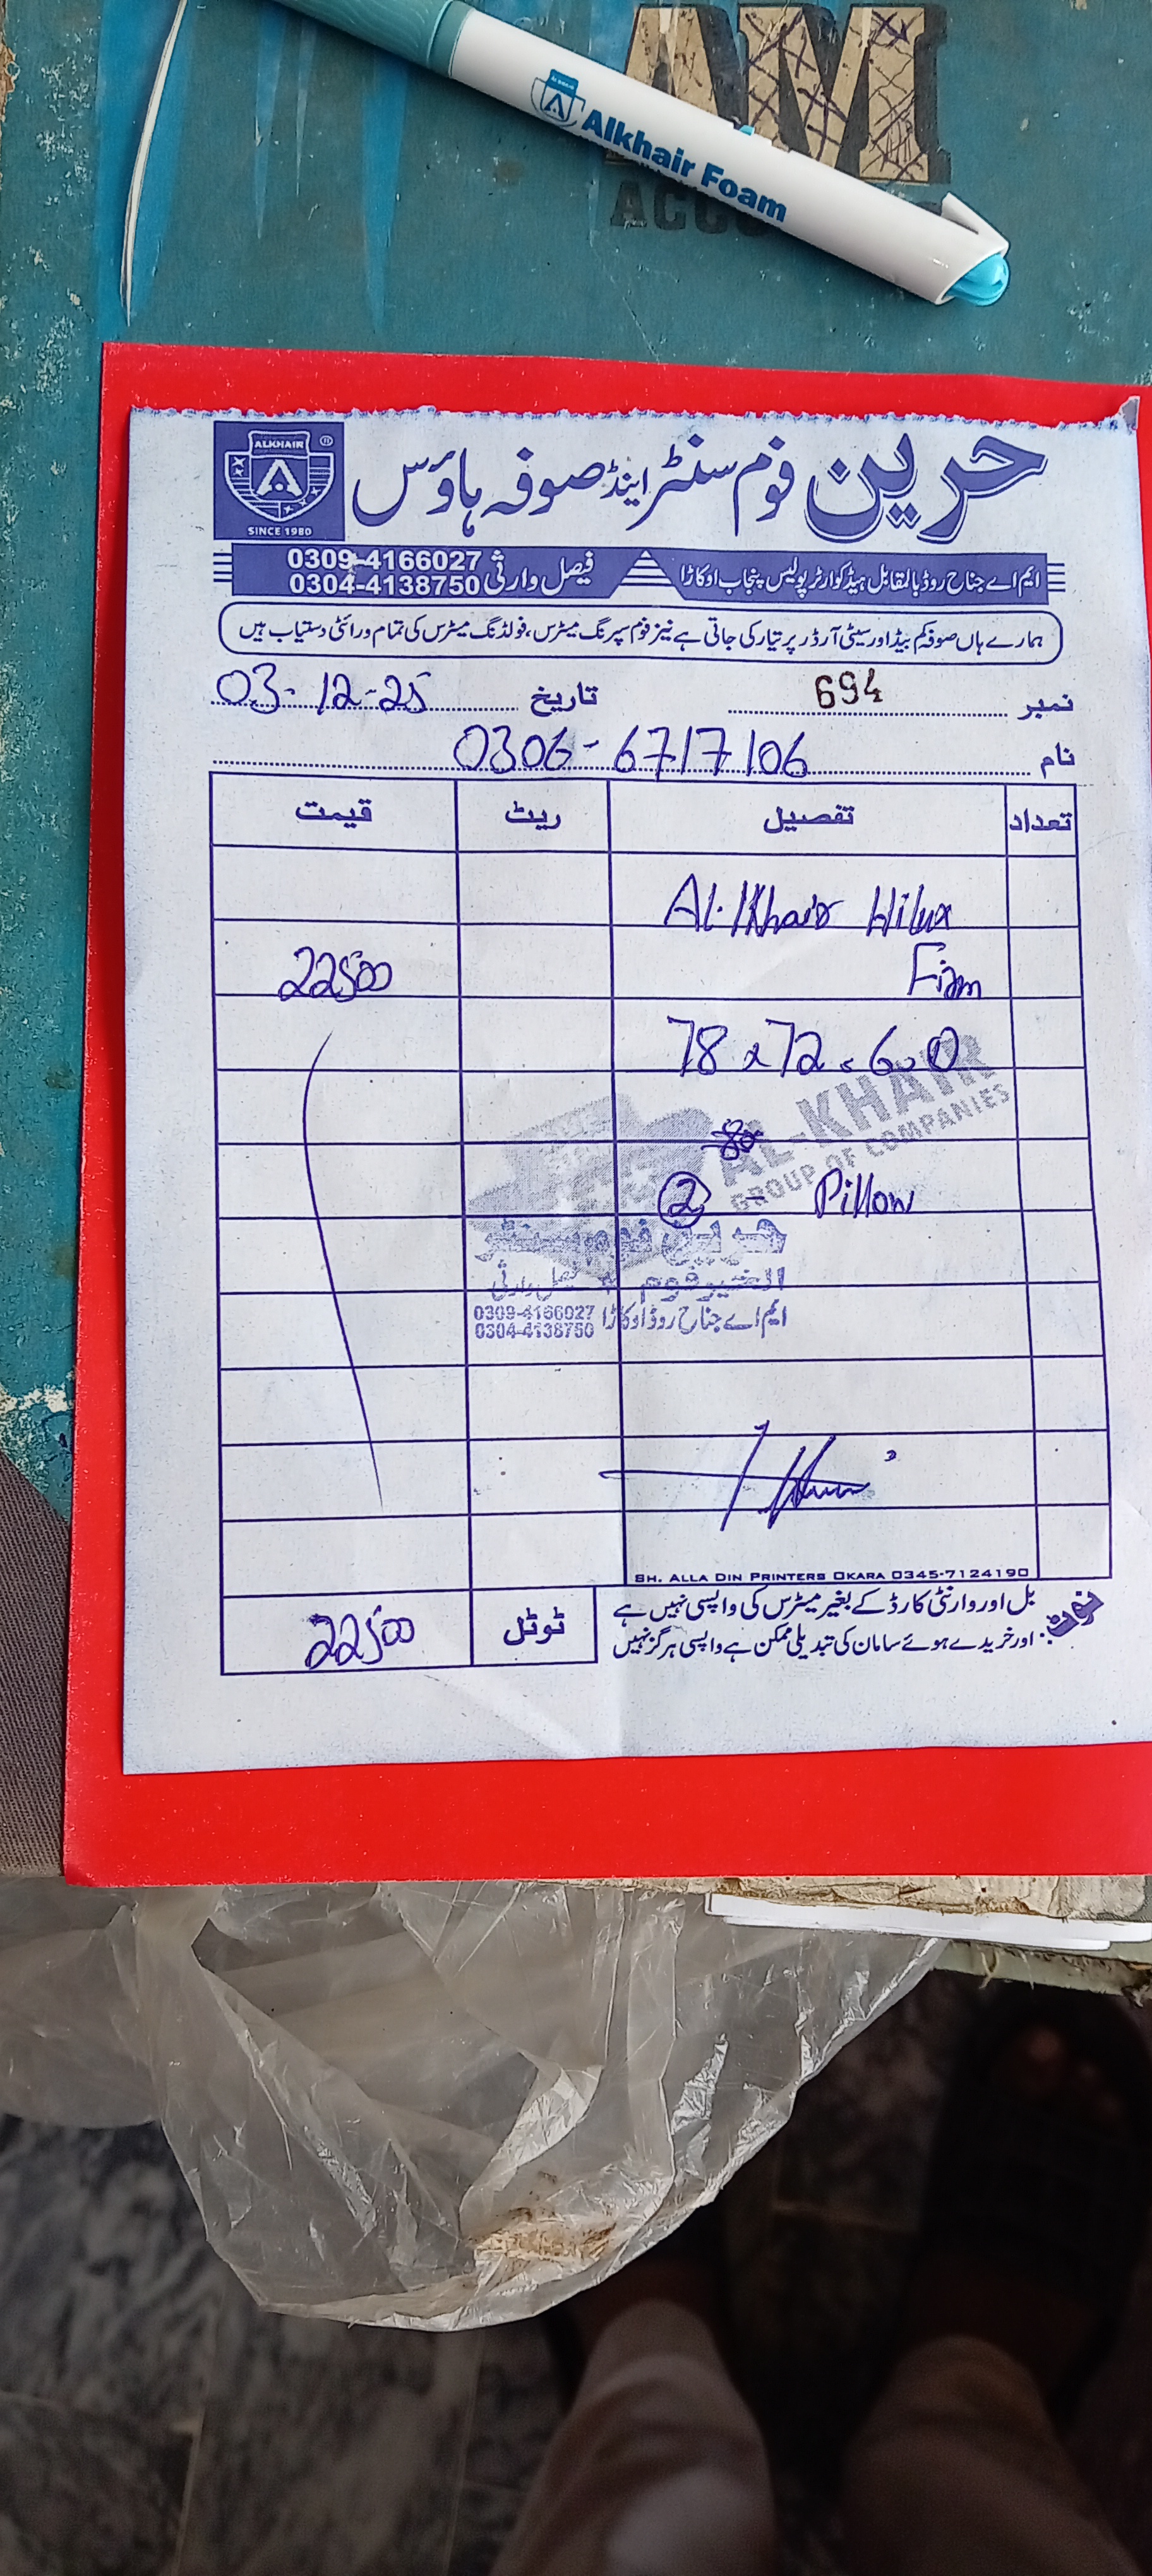 Alkhair Foam
AM
ALKHAIR
SINCE 1980
حرین فوم سنٹر اینڈ صوفہ ہاؤس
ایم اے جناح روڈ بالمقابل ہیڈ کوارٹر پولیس پنجاب اوکاڑا
فیصل وارثی 0309-4166027
0304-4138750
ہمارے ہاں صوفہ کم بیڈ اور سیٹی آرڈر پر تیار کی جاتی ہے نیز فوم سپرنگ میٹرس، فولڈنگ میٹرس کی تمام ورائٹی دستیاب ہیں
نمبر 694 تاریخ 03-12-25
نام 0306-6717106
تعداد تفصیل ریٹ قیمت
Al-Khair Hilux
22500
78 x 72 x 6.0
AL-KHAIR
GROUP OF COMPANIES
2 - Pillow
حرین فوم سنٹر
الخیر فوم فیصل وارثی
ایم اے جناح روڈ اوکاڑا 0309-4166027
0304-4138750
SH. ALLA DIN PRINTERS OKARA 0345-7124190
نوٹ: بل اور وارنٹی کارڈ کے بغیر میٹرس کی واپسی نہیں ہے
اور خریدے ہوئے سامان کی تبدیلی ممکن ہے واپسی ہرگز نہیں
ٹوٹل 22500